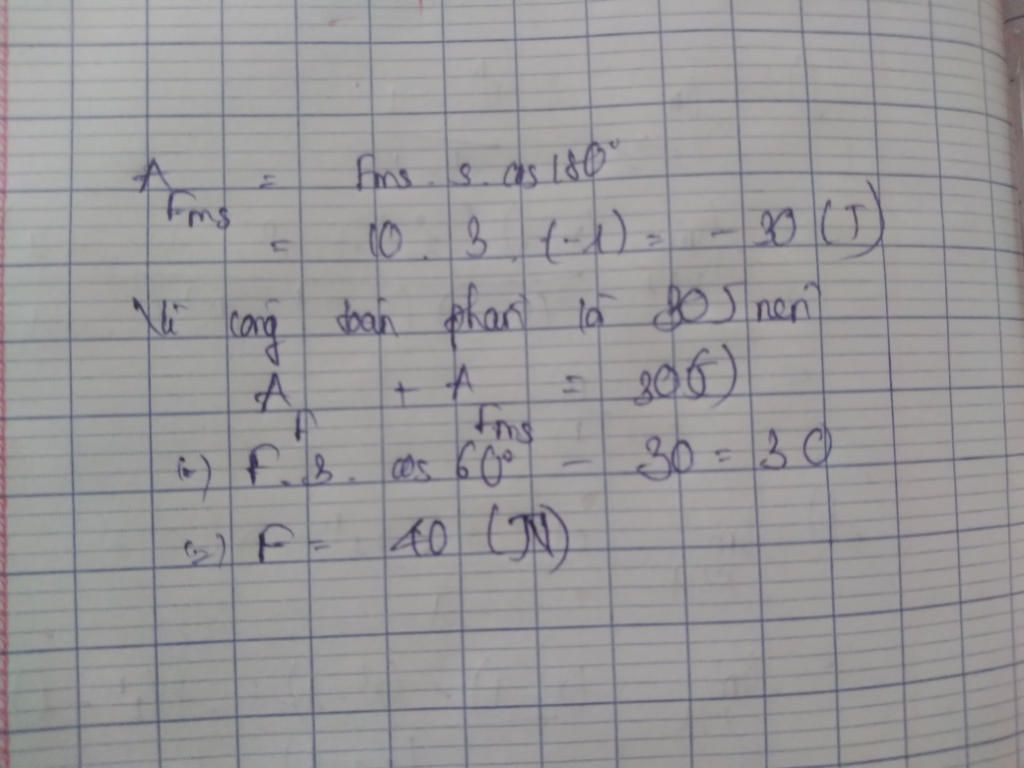 A_Fms = Fms . s . cos 180°
= 10 . 3 . (-1) = - 30 (J)
Vì công toàn phần là 30J nên
A_F + A_Fms = 30(J)
(=) F . 3 . cos 60° - 30 = 30
(=) F = 40 (N)